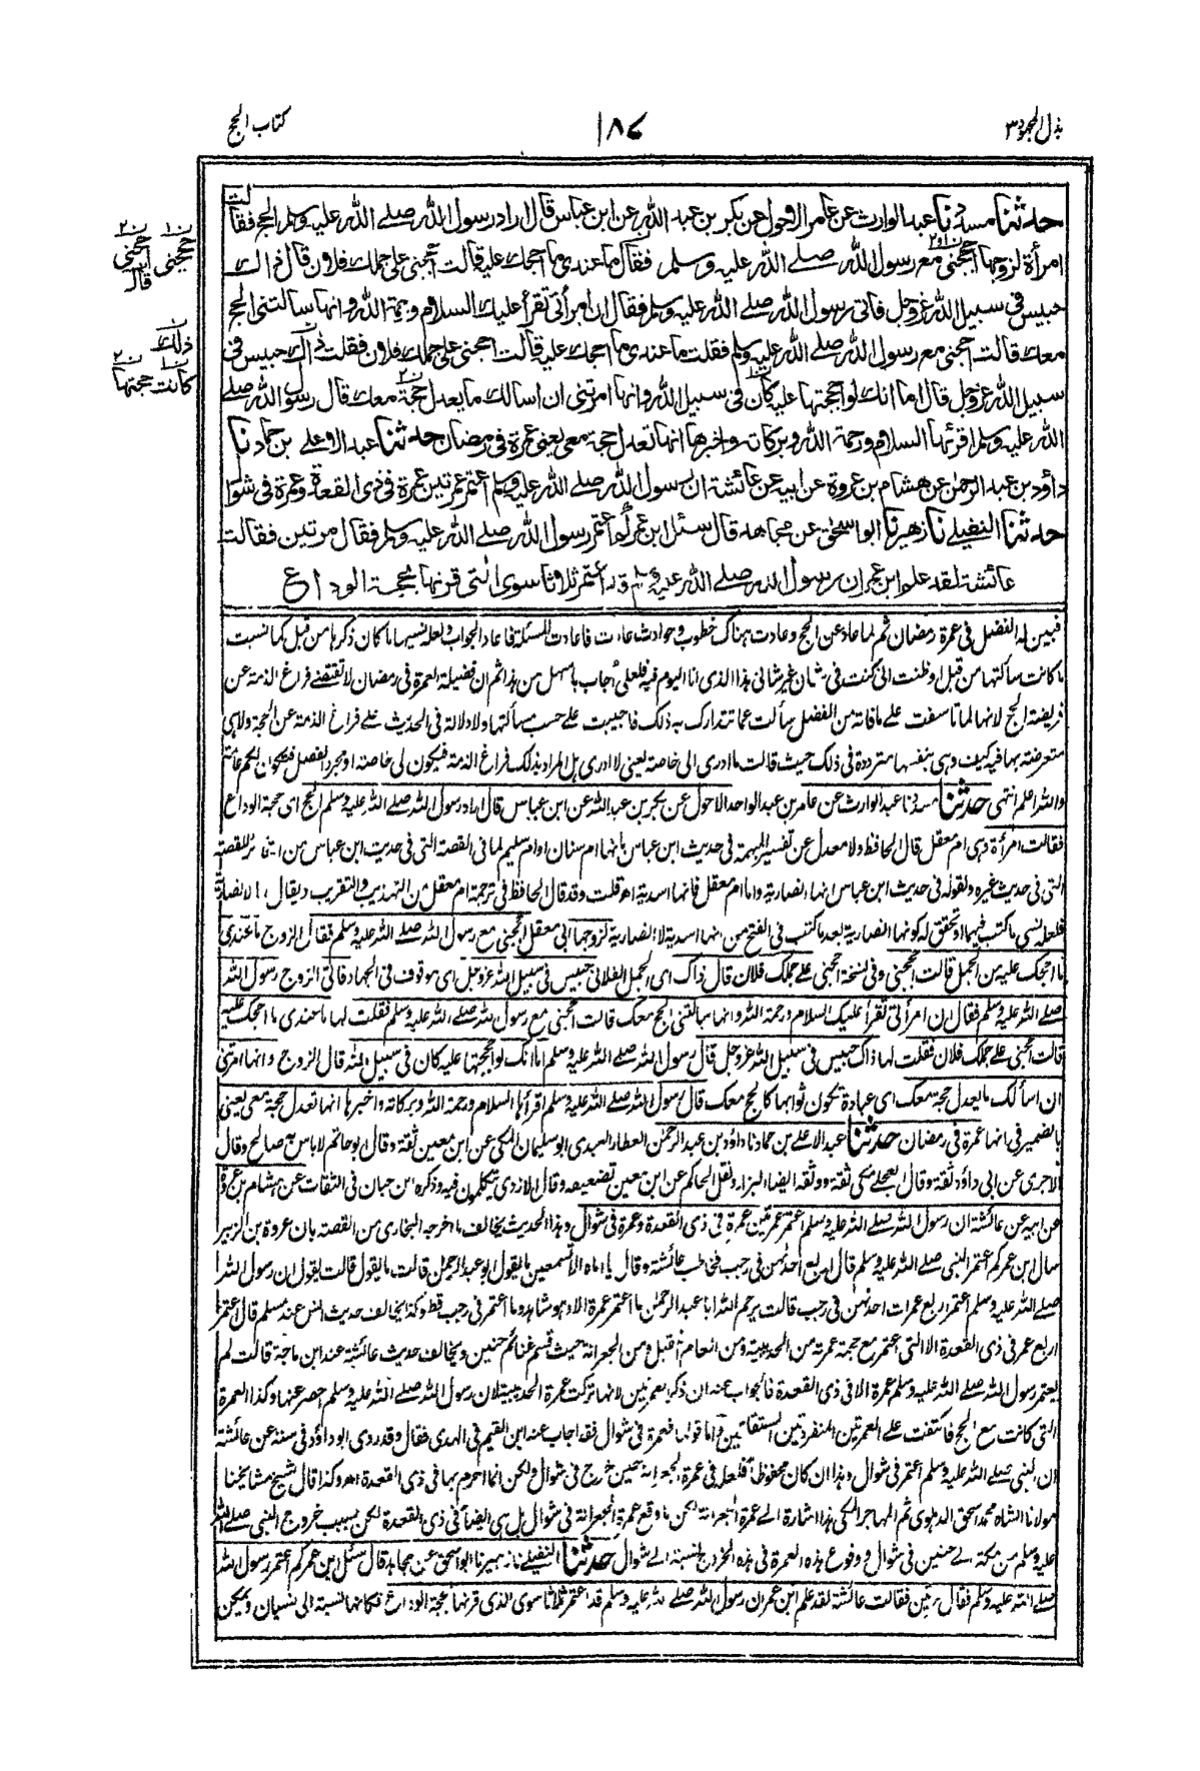 بذل المجهود ٣
١٨٧
كتاب الحج
حدثنا مسدد نا عبد الوارث عن عامر الاحول عن بكر بن عبد الله عن ابن عباس قال اراد رسول الله صلے الله عليه وسلم الحج فقالت
امرأة لزوجها احجني مع رسول الله صلے الله عليه وسلم فقال ما عندي ما احجك عليه قالت احجني على جملك فلان قال ذاك
حبيس في سبيل الله عز وجل فاتى رسول الله صلے الله عليه وسلم فقال ان امرأتي تقرأ عليك السلام ورحمة الله وانها سألتني الحج
معك قالت احجني مع رسول الله صلے الله عليه وسلم فقلت ما عندي ما احجك عليه قالت احجني على جملك فلان فقلت ذاك حبيس في
سبيل الله عز وجل قال اما انك لو احججتها عليه كان في سبيل الله وانها امرتني ان اسالك ما يعدل حجة معك قال رسول الله صلے
الله عليه وسلم اقرئها السلام ورحمة الله وبركاته واخبرها انها تعدل حجة معي يعني عمرة في رمضان حدثنا عبد الاعلے بن حماد نا
داؤد بن عبد الرحمن عن هشام بن عروة عن ابيه عن عائشة ان رسول الله صلے الله عليه وسلم اعتمر عمرتين عمرة في ذي القعدة وعمرة في شوال
حدثنا النفيلے نا زهير نا ابو اسحق عن مجاهد قال سئل ابن عمر كم اعتمر رسول الله صلے الله عليه وسلم فقال مرتين فقالت
عائشة لقد علم ابن عمر ان رسول الله صلے الله عليه وسلم قد اعتمر ثلاثا سوى التي قرنها بحجة الوداع
ن١ ن٢
حججني احجني
قال
ن
ذلك
ن١ ن٢
كانت حجتها
فبين له الفضل في عمرة رمضان ثم لما عاد عن الحج وعادت هناك خطوب وحوادث عادت فاعادت المسئلة فاعاد الجواب ولعله نسيها ما كان ذكرها من قبل كما نسيت
ما كانت سألتها من قبل وظنت اني كنت في شان غير شاني هذا الذي انا اليوم فيه فلعلي اجاب باسهل من هذا ثم ان فضيلة العمرة في رمضان لا تقتضے فراغ الذمة عن
فريضة الحج لانها لما تاسفت علے ما فاته من الفضل سألت عما تتدارك به ذلك فاجيبت علے حسب مسألتها ولا دلالة في الحديث علے فراغ الذمة عن الحجة ولا هي
متعرضة بها فيه كيف وهي بنفسها مترددة في ذلك حيث قالت ما ادري الي خاصة يعني لا ادري هل المراد بذلك فراغ الذمة فيكون لي خاصة او مجرد الفضل فيكون الحكم عاما
والله اعلم انتهى حدثنا مسدد نا عبد الوارث عن عامر بن عبد الواحد الاحول عن بكر بن عبد الله عن ابن عباس قال اراد رسول الله صلے الله عليه وسلم الحج اي حجة الوداع
فقالت امرأة وهي ام معقل قال الحافظ ولا معدل عن تفسير المبهمة في حديث ابن عباس بانها ام سنان او ام سليم لما في القصة التي في حديث ابن عباس من التغاير للقصة
التي في حديث غيره ولقوله في حديث ابن عباس انها انصارية واما ام معقل فانها اسدية اھ قلت وقد قال الحافظ في ترجمة ام معقل من التهذيب والتقريب ويقال الانصارية
فلعله نسي ما كتب فيهما او تحقق له كونها انصارية بعد ما كتب في الفتح من انها اسدية لا انصارية لزوجها ابي معقل احجني مع رسول الله صلے الله عليه وسلم فقال الزوج ما عندي
ما احجك عليه من الجمل قالت احججني وفي نسخة احجني علے جملك فلان قال ذاك اي الجمل الفلاني حبيس في سبيل الله عز وجل اي موقوف في الجهاد فاتى الزوج رسول الله
صلے الله عليه وسلم فقال ان امرأتي تقرأ عليك السلام ورحمة الله وانها سألتني الحج معك قالت احجني مع رسول الله صلے الله عليه وسلم فقلت لها ما عندي ما احجك عليه
قالت احجني علے جملك فلان فقلت لها ذاك حبيس في سبيل الله عز وجل قال رسول الله صلے الله عليه وسلم اما انك لو احججتها عليه كان في سبيل الله قال الزوج وانها امرتني
ان اسألك ما يعدل حجة معك اي عبادة تكون ثوابها كالحج معك قال رسول الله صلے الله عليه وسلم اقرأها السلام ورحمة الله وبركاته واخبرها انها تعدل حجة معي يعني
بالضمير في انها عمرة في رمضان حدثنا عبد الاعلے بن حماد نا داؤد بن عبد الرحمن العطار العبدي ابو سليمان المكي عن ابن معين ثقة وقال ابو حاتم لا باس به صالح وقال
الآجري عن ابي داؤد ثقة وقال العجلے مكي ثقة ووثقه ايضا البزار ونقل الحاكم عن ابن معين تضعيفه وقال الازدي يتكلمون فيه وذكره ابن حبان في الثقات عن هشام بن عروة
عن ابيه عن عائشة ان رسول الله صلے الله عليه وسلم اعتمر عمرتين عمرة في ذي القعدة وعمرة في شوال وهذا الحديث يخالف ما اخرجه البخاري من القصة بان عروة بن الزبير
سال ابن عمر كم اعتمر النبي صلے الله عليه وسلم قال اربع احداهن في رجب فخاطب عائشة وقال يا اماه الا تسمعين ما يقول ابو عبد الرحمن قالت ما يقول قالت يقول ان رسول الله
صلے الله عليه وسلم اعتمر اربع عمرات احدهن في رجب قالت يرحم الله ابا عبد الرحمن ما اعتمر عمرة الا وهو شاهد وما اعتمر في رجب قط وكذا يخالف حديث انس عند مسلم قال اعتمر
اربع عمر في ذي القعدة الا التي اعتمر مع حجته عمرته من الحديبية ومن العام المقبل ومن الجعرانة حيث قسم غنائم حنين ويخالف حديث عائشة عند ابن ماجة قالت لم
يعتمر رسول الله صلے الله عليه وسلم عمرة الا في ذي القعدة فالجواب عنه ان ذكر العمرتين لانها تركت عمرة الحديبية لان رسول الله صلے الله عليه وسلم حصر عنها وكذا العمرة
التي كانت مع الحج فاكتفت علے العمرتين المنفردتين المستقلتين واما قولها فعمرة في شوال فقد اجاب عنه ابن القيم في الهدى فقال وقد روى ابو داؤد في سننه عن عائشة
ان النبي صلے الله عليه وسلم اعتمر في شوال وهذا ان كان محفوظا فلعله في عمرة الجعرانة حين خرج في شوال ولكن انما احرم بها في ذي القعدة اھ وكذا قال شيخ مشايخنا
مولانا الشاه محمد اسحق الدهلوي ثم المهاجر المكي هذا اشارة الے عمرة الجعرانة لكن ما وقع عمرة الجعرانة في شوال بل هي ايضا في ذي القعدة لكن بسبب خروج النبي صلے الله
عليه وسلم من مكة الے حنين في شوال ووقوع هذه العمرة في هذه الخروج نسبت الے شوال حدثنا النفيلے نا زهير نا ابو اسحق عن مجاهد قال سئل ابن عمر كم اعتمر رسول الله
صلے الله عليه وسلم فقال مرتين فقالت عائشة لقد علم ابن عمر ان رسول الله صلے الله عليه وسلم قد اعتمر ثلاثا سوى الذي قرنها بحجة الوداع فكانها نسبته الى نسيان ويمكن